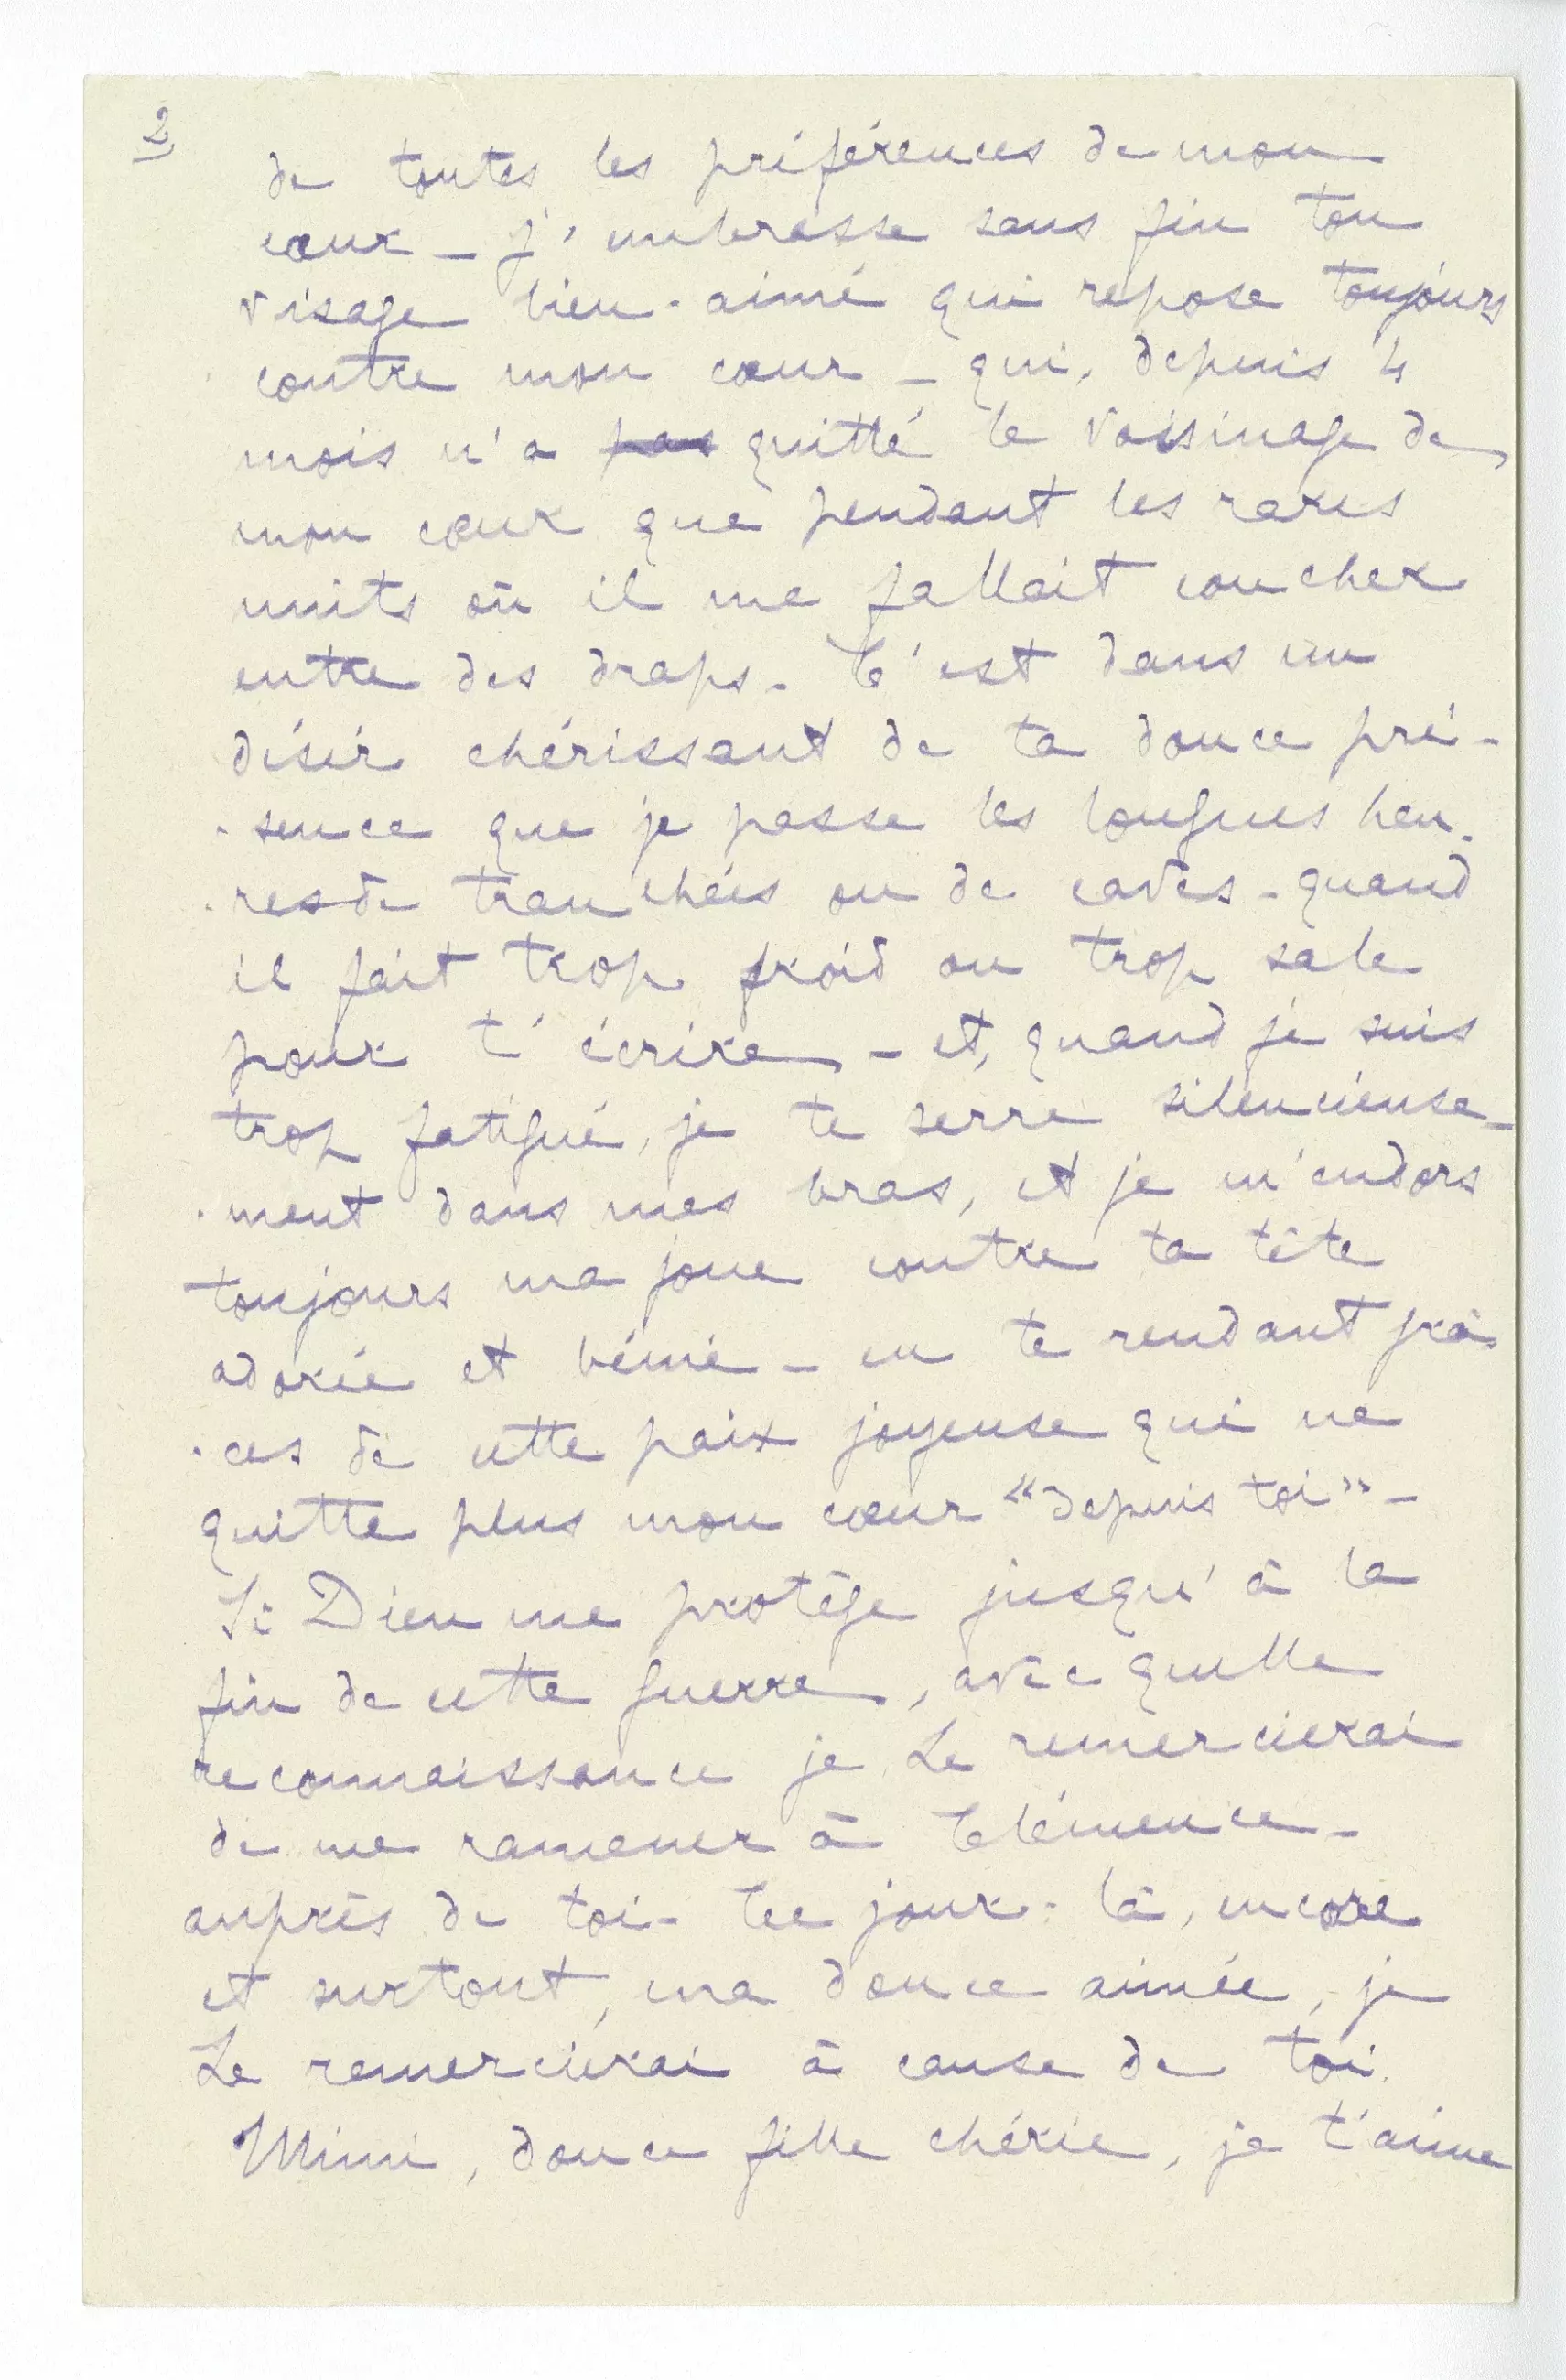 2
de toutes les préférences de mon
cœur _ j'embrasse sans fin ton
visage bien-aimé qui repose toujours
contre mon cœur _ qui, depuis 4
mois n'a pas quitté le voisinage de
mon cœur que pendant les rares
nuits où il me fallait coucher
entre des draps _ C'est dans un
désir chérissant de ta douce pré-
-sence que je passe les longues heu-
-res de tranchées ou de caves - quand
il fait trop froid ou trop sale
pour t'écrire - et, quand je suis
trop fatigué, je te serre silencieuse-
-ment dans mes bras, et je m'endors
toujours ma joue contre ta tête
adorée et bénie _ en te rendant grâ-
-ces de cette paix joyeuse qui ne
quitte plus mon cœur "depuis toi" _
Si Dieu me protège jusqu'à la
fin de cette guerre, avec quelle
reconnaissance je Le remercierai
de me ramener à Clémence _
auprès de toi _ Ce jour-là, encore
et surtout, ma douce aimée, je
Le remercierai à cause de toi.
Mimi, douce fille chérie, je t'aime